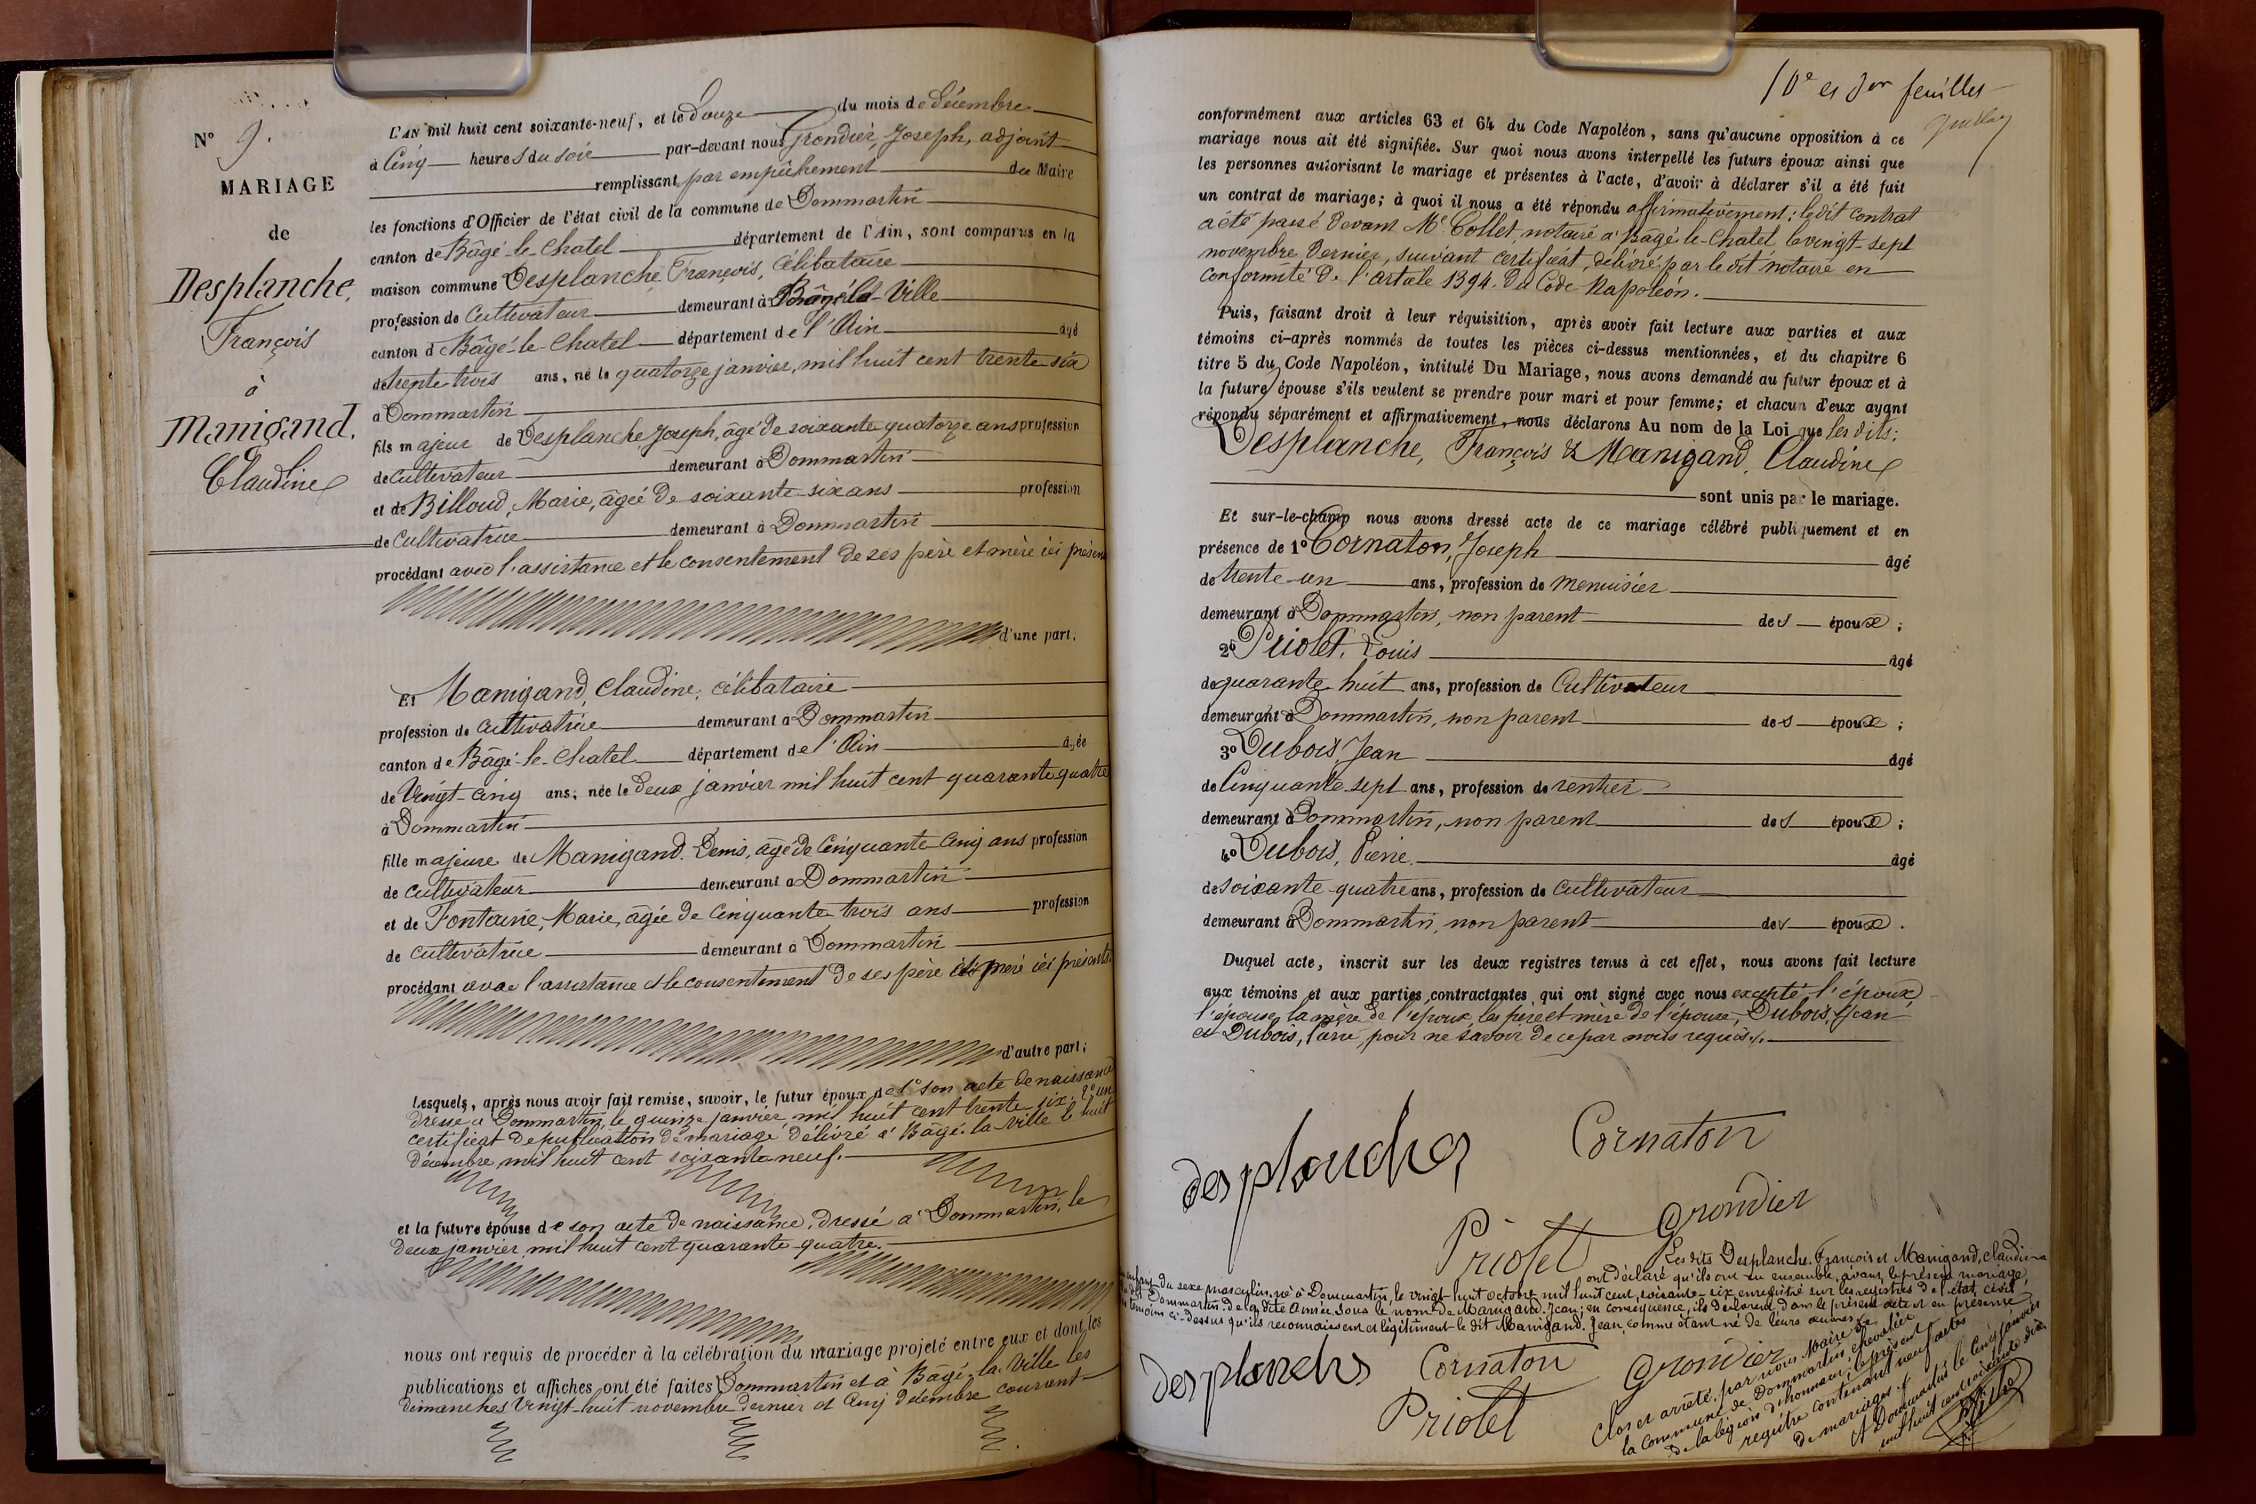 N° 9.
MARIAGE
de
Desplanche,
François
à
Manigand,
Claudine
L'AN mil huit cent soixante-neuf, et le Douze du mois de décembre
à Cinq heures du soir par-devant nous Grondier, Joseph, adjoint
remplissant par empêchement du Maire
les fonctions d'Officier de l'état civil de la commune de Dommartin
canton de Bâgé-le-Chatel département de l'Ain, sont comparus en la
maison commune Desplanche François, célibataire
profession de Cultivateur demeurant à Bâgé-la-Ville
canton de Bâgé-le-Chatel département de l'Ain âgé
de trente trois ans, né le quatorze janvier, mil huit cent trente six
à Dommartin
fils majeur de Desplanche Joseph, âgé de soixante quatorze ans profession
de cultivateur demeurant à Dommartin
et de Billoud, Marie, âgée de soixante six ans profession
de Cultivatrice demeurant à Dommartin
procédant avec l'assistance et le consentement de ses père et mère ici présents
d'une part.
Et Manigand, Claudine, célibataire
profession de cultivatrice demeurant à Dommartin
canton de Bâgé-le-Chatel département de l'Ain âgée
de Vingt-cinq ans, née le deux janvier mil huit cent quarante quatre
à Dommartin
fille majeure de Manigand Denis, âgé de Cinquante Cinq ans profession
de cultivateur demeurant à Dommartin
et de Fontaine, Marie, âgée de Cinquante trois ans profession
de cultivatrice demeurant à Dommartin
procédant avec l'assistance et le consentement de ses père et mère ici présents
d'autre part;
Lesquels, après nous avoir fait remise, savoir, le futur époux de 1° son acte de naissance
dressé à Dommartin, le quinze janvier mil huit cent trente six; 2° un
certificat de publication de mariage délivré à Bâgé-la-Ville le huit
décembre mil huit cent soixante neuf.
et la future épouse de son acte de naissance, dressé à Dommartin, le
deux janvier mil huit cent quarante-quatre.
nous ont requis de procéder à la célébration du mariage projeté entre eux et dont les
publications et affiches ont été faites Dommartin et à Bâgé-la-Ville les
dimanches Vingt-huit novembre dernier et Cinq décembre courant
10e et der feuillet
conformément aux articles 63 et 64 du Code Napoléon, sans qu'aucune opposition à ce
mariage nous ait été signifiée. Sur quoi nous avons interpellé les futurs époux ainsi que
les personnes autorisant le mariage et présentes à l'acte, d'avoir à déclarer s'il a été fait
un contrat de mariage; à quoi il nous a été répondu affirmativement; ledit contrat
a été passé devant Me Collet, notaire à Bâgé-le-Chatel le vingt-sept
novembre dernier, suivant certificat, délivré par le dit notaire en
conformité de l'article 1394 du Code Napoléon.
Puis, faisant droit à leur réquisition, après avoir fait lecture aux parties et aux
témoins ci-après nommés de toutes les pièces ci-dessus mentionnées, et du chapitre 6
titre 5 du Code Napoléon, intitulé Du Mariage, nous avons demandé au futur époux et à
la future épouse s'ils veulent se prendre pour mari et pour femme; et chacun d'eux ayant
répondu séparément et affirmativement, nous déclarons Au nom de la Loi que les dits:
Desplanche, François & Manigand, Claudine
sont unis par le mariage.
Et sur-le-champ nous avons dressé acte de ce mariage célébré publiquement et en
présence de 1° Cornaton, Joseph âgé
de trente-un ans, profession de menuisier
demeurant à Dommartin, non parent des époux;
2° Priolet, Louis âgé
de quarante huit ans, profession de Cultivateur
demeurant à Dommartin, non parent des époux;
3° Dubois, Jean âgé
de Cinquante-sept ans, profession de rentier
demeurant à Dommartin, non parent des époux;
4° Dubois, Pierre âgé
de soixante-quatre ans, profession de cultivateur
demeurant à Dommartin, non parent des époux.
Duquel acte, inscrit sur les deux registres tenus à cet effet, nous avons fait lecture
aux témoins et aux parties contractantes qui ont signé avec nous excepté l'époux,
l'épouse, la mère de l'époux, les père et mère de l'épouse, Dubois, Jean
et Dubois, Pierre, pour ne savoir de ce par nous requis.
desplanches Cornaton
Priolet Grondier
Les dits Desplanche, François et Manigand, Claudine
ont déclaré qu'ils ont eu ensemble, avant le présent mariage,
enfant du sexe masculin, né à Dommartin, le vingt-huit octobre mil huit cent soixante-six, enregistré sur les registres de l'état civil
dudit Dommartin de la dite année sous le nom de Manigand, Jean; en conséquence, ils déclarent, dans le présent acte et en présence
des témoins ci-dessus qu'ils reconnaissent et légitiment le dit Manigand, Jean, comme étant né de leurs œuvres
desplanches Cornaton Grondier
Priolet
Clos et arrêté par nous Maire de
la commune de Dommartin, chevalier
de la légion d'honneur, le présent
registre contenant neuf actes
de mariage.
A Dommartin le cinq janvier
mil huit cent soixante dix